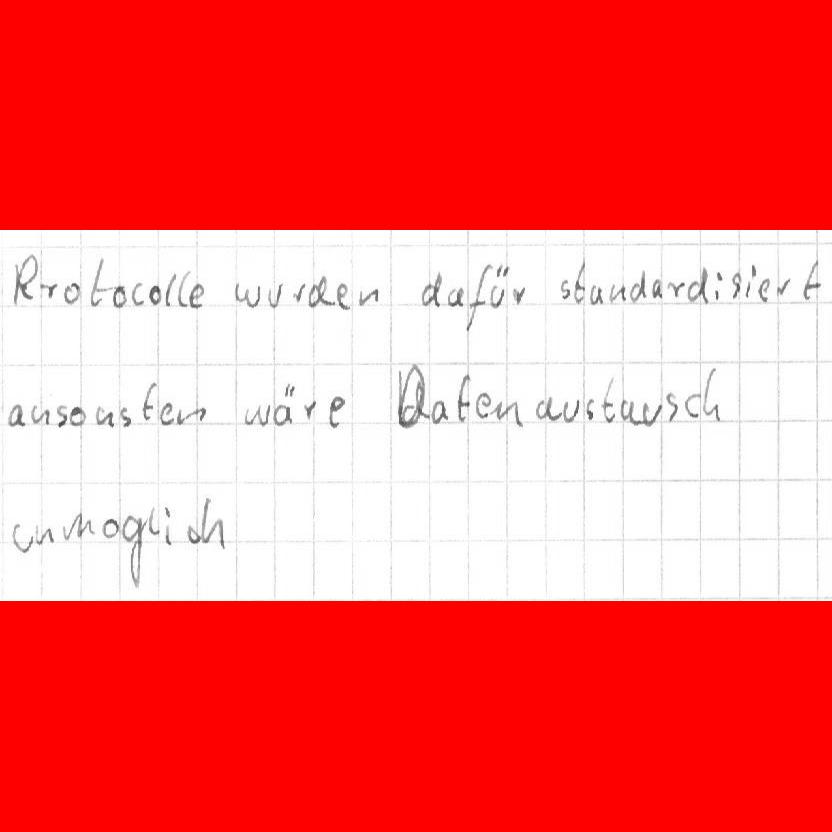 Protocolle wurden dafür standardisiert
ansonsten wäre Datenaustausch
unmoglich